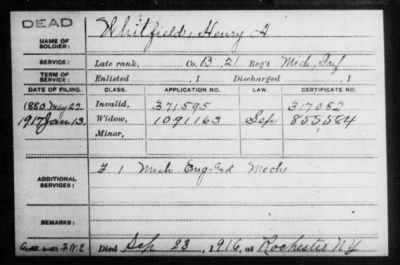 DEAD
NAME OF SOLDIER: Whitfield, Henry A
SERVICE: Late rank, Co. B, 21 Reg't Mich. Inf
TERM OF SERVICE: Enlisted , 1 Discharged , 1
DATE OF FILING. CLASS. APPLICATION NO. LAW. CERTIFICATE NO.
1880, May 22 Invalid, 371595 317052
1917 Jan 13. Widow, 1091163 Sep 855,584
Minor,
ADDITIONAL SERVICES: F 1 Mich Eng and Mech
Died Sep 23, 1916, at Rochester NY